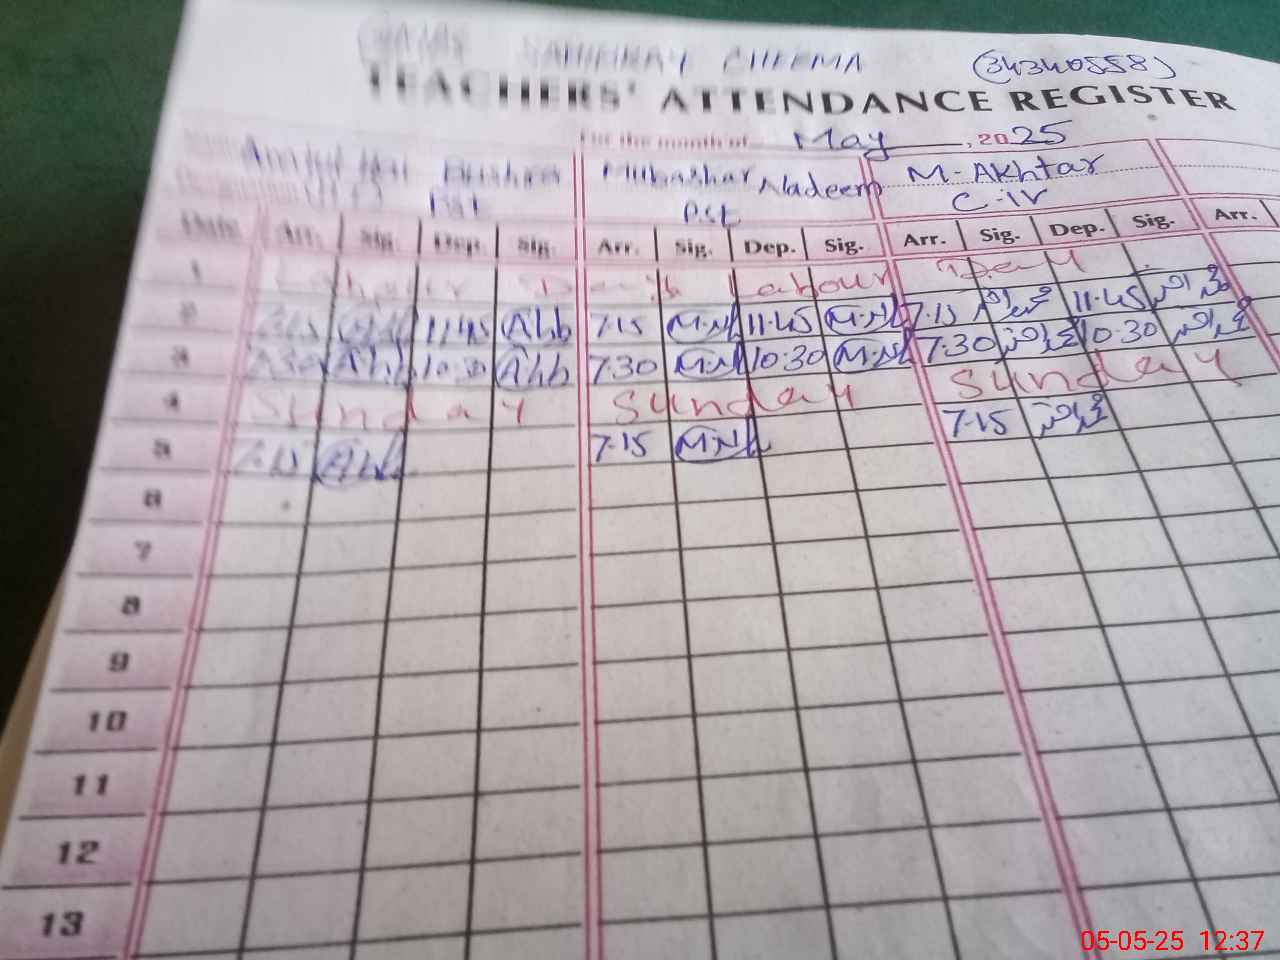 CHEEMA (34340558)
TEACHERS' ATTENDANCE REGISTER
For the month of May, 2025
Bushra Mubashar Nadeem M. Akhtar
PST PST C-iv
Date Arr. Sig. Dep. Sig. Arr. Sig. Dep. Sig. Arr. Sig. Dep. Sig. Arr.
1 Labour Day Labour Day
2 7:15 Ahb 11:45 Ahb 7:15 M.N 11:45 M.N 7:15 محمد اختر 11:45 محمد اختر
3 7:30 Ahb 10:30 Ahb 7:30 M.N 10:30 M.N 7:30 محمد اختر 10:30 محمد اختر
4 Sunday Sunday Sunday
5 7:15 Ahb 7:15 M.N 7:15 محمد اختر
6
7
8
9
10
11
12
13
05-05-25 12:37